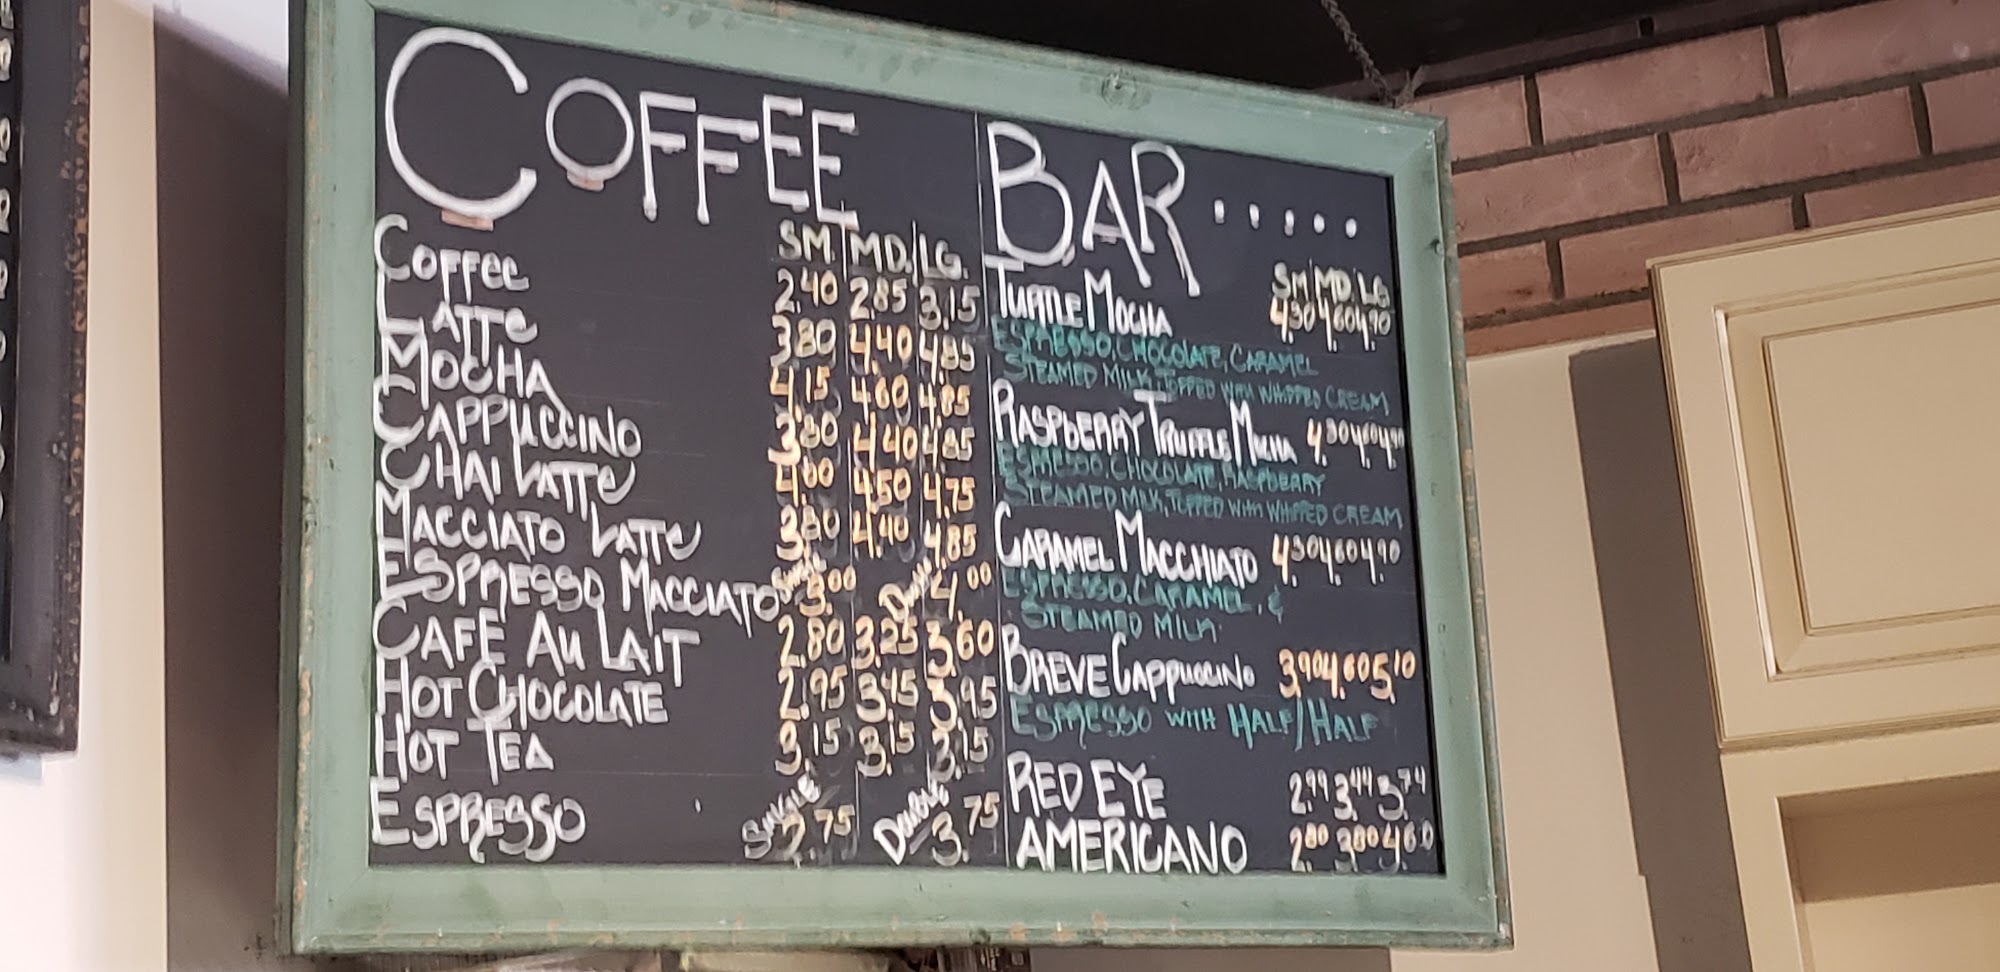 COFFEE BAR.....
SM. MD. LG.
COFFEE 2.40 2.85 3.15
LATTE 3.80 4.40 4.85
MOCHA 4.15 4.60 4.85
CAPPUCCINO 3.80 4.40 4.85
CHAI LATTE 4.00 4.50 4.75
MACCIATO LATTE 3.80 4.40 4.85
ESPRESSO MACCIATO SINGLE 3.00 DOUBLE 4.00
CAFE AU LAIT 2.80 3.25 3.60
HOT CHOCOLATE 2.95 3.45 3.95
HOT TEA 3.15 3.15 3.15
ESPRESSO SINGLE 2.75 DOUBLE 3.75
SM MD. LG
TURTLE MOCHA 4.30 4.60 4.90
ESPRESSO, CHOCOLATE, CARAMEL
STEAMED MILK, TOPPED WITH WHIPPED CREAM
RASPBERRY TRUFFLE MOCHA 4.30 4.60 4.90
ESPRESSO, CHOCOLATE, RASPBERRY
STEAMED MILK, TOPPED WITH WHIPPED CREAM
CARAMEL MACCHIATO 4.30 4.60 4.90
ESPRESSO, CARAMEL, &
STEAMED MILK.
BREVE CAPPUCCINO 3.90 4.60 5.10
ESPRESSO WITH HALF/HALF
RED EYE 2.99 3.44 3.74
AMERICANO 2.80 3.80 4.60